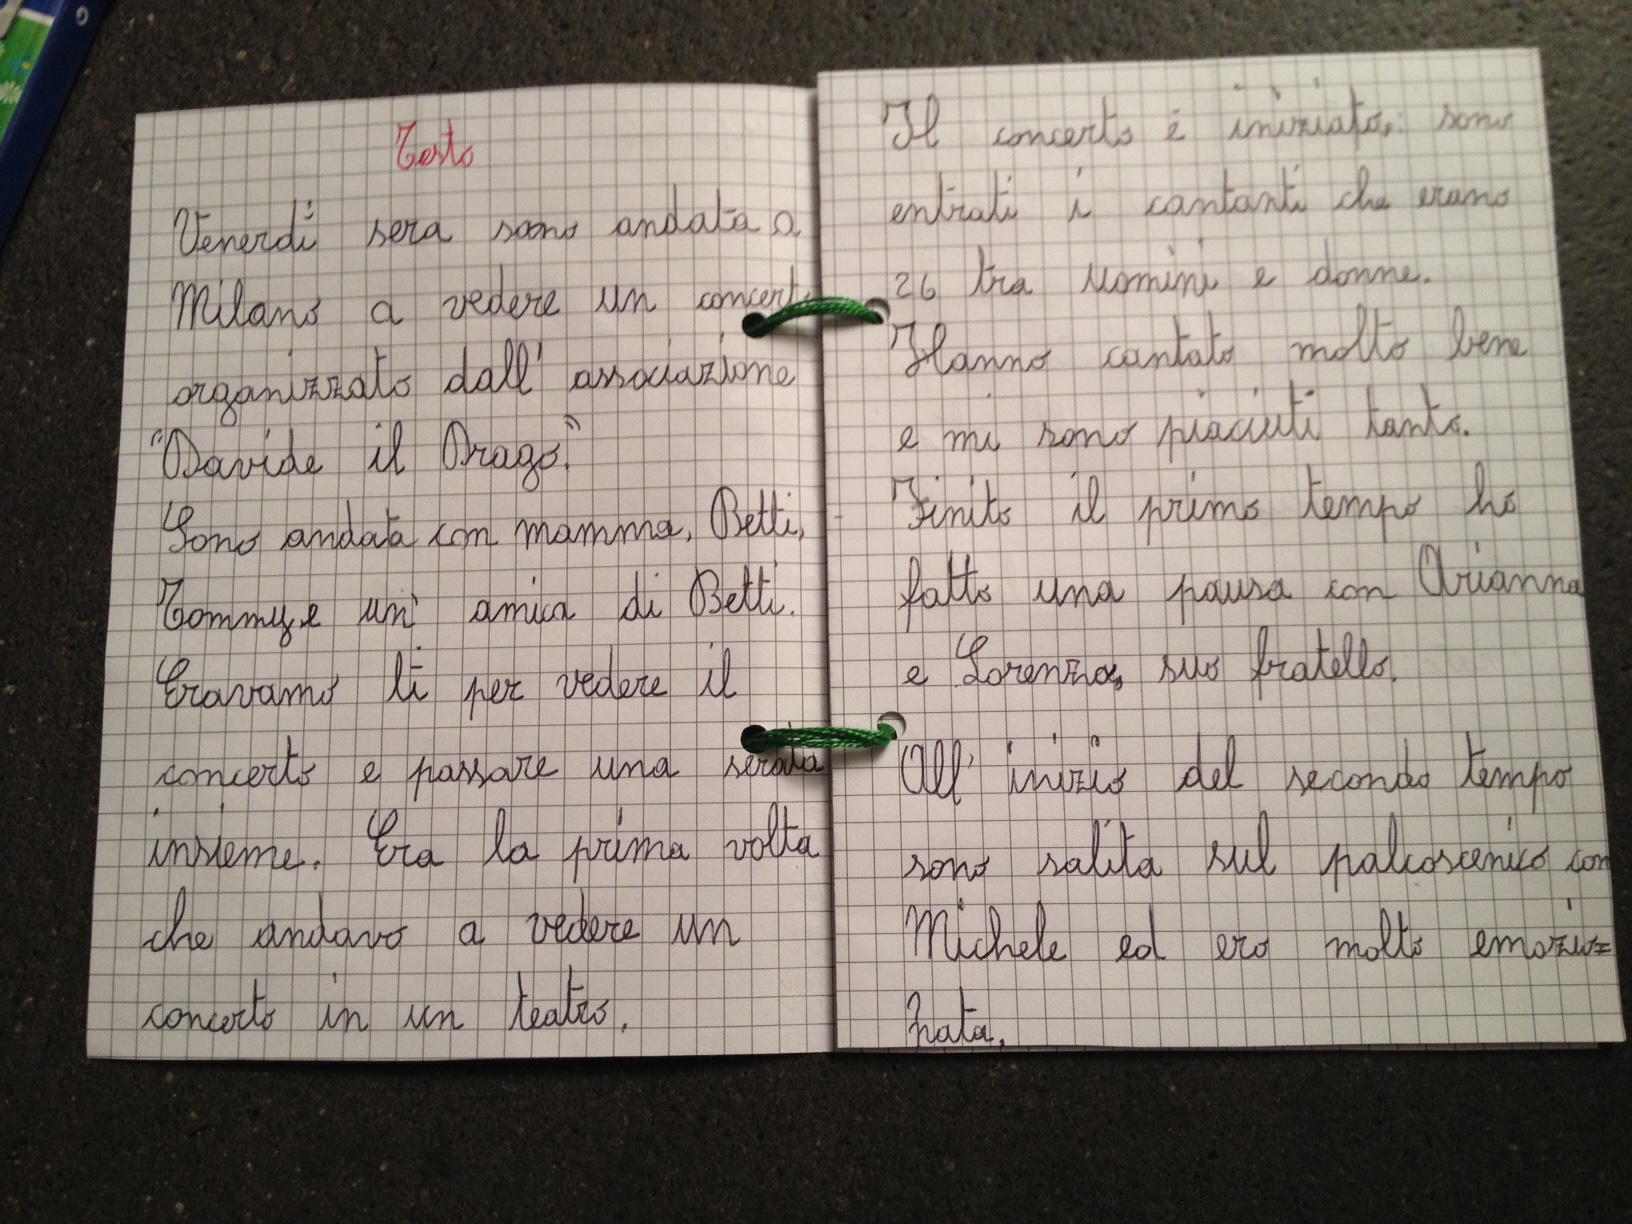 Testo
Venerdì sera sono andata a
Milano a vedere un concert
organizzato dall' associazione
"Davide il Drago".
Sono andata con mamma, Betti,
Tommy e un' amica di Betti.
Eravamo lì per vedere il
concerto e passare una serata
insieme. Era la prima volta
che andavo a vedere un
concerto in un teatro.
Il concerto è iniziato, sono
entrati i cantanti che erano
26 tra uomini e donne.
Hanno cantato molto bene
e mi sono piaciuti tanto.
Finito il primo tempo ho
fatto una pausa con Arianna
e Lorenzo, suo fratello.
All' inizio del secondo tempo
sono salita sul palcoscenico con
Michele ed ero molto emozio=
nata.